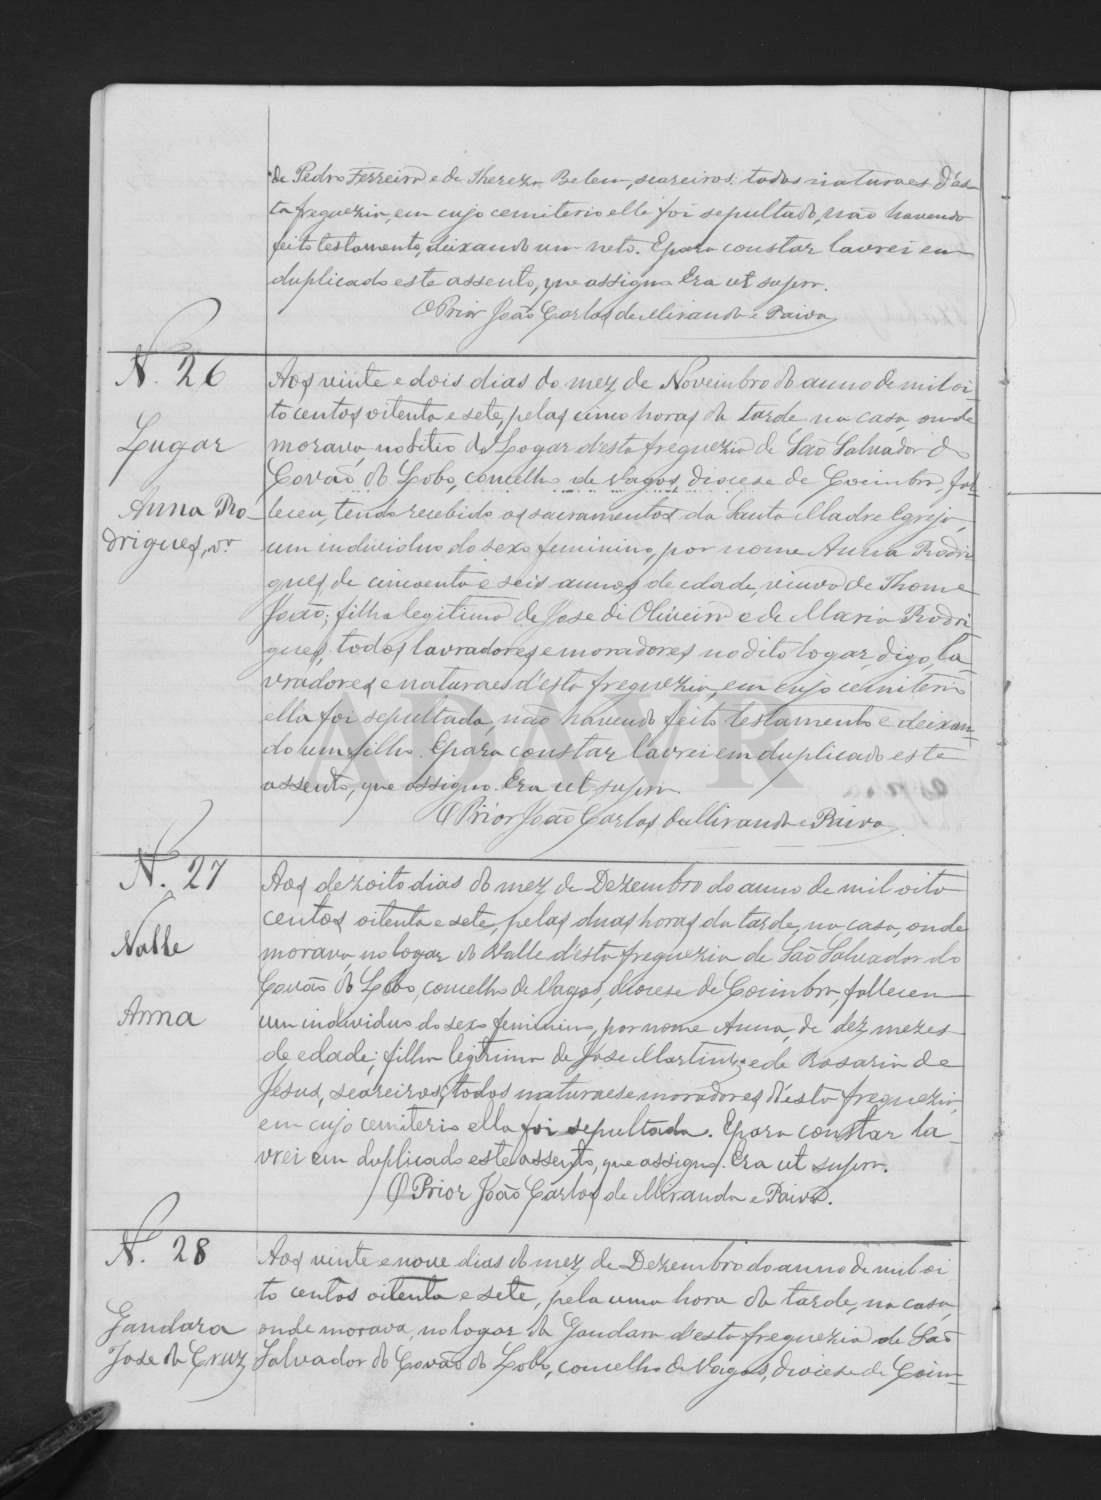 de Pedro Ferreira e de Thereza Belem, seareiros: todos naturaes d'es
ta freguezia, em cujo cemiterio elle foi sepultado, não havendo
feito testamento, deixando um neto. E para constar lavrei em
duplicado este assento, que assigno. Era ut supra.
O Prior João Carlos de Miranda e Paiva
N. 26
Lugar
Anna Ro-
drigues, v.ª
Aos vinte e dois dias do mez de Novembro do anno de mil oi-
to centos oitenta e sete, pelas cinco horas da tarde na casa, onde
morava, no sitio do Logar d'esta freguezia de São Salvador do
Covão do Lobo, concelho de Vagos, diocese de Coimbra, fal-
leceu, tendo recebido os sacramentos da Santa Madre Egreja,
um individuo do sexo feminino, por nome Anna Rodri
gues, de cincoenta e seis annos de edade, viuva de Thome
João; filha legitima de Jose de Oliveira e de Maria Rodri
gues, todos lavradores e moradores no dito logar, digo, la
vradores e naturaes d'esta freguezia, em cujo cemiterio
ella foi sepultada, não havendo feito testamento e deixan-
do um filho. E para constar lavrei em duplicado este
assento, que assigno. Era ut supra.
O Prior João Carlos de Miranda e Paiva
N. 27
Valle
Anna
Aos dezoito dias do mez de Dezembro do anno de mil oito
centos oitenta e sete, pelas duas horas da tarde, na casa, onde
morava, no logar do Valle d'esta freguezia de São Salvador do
Covão do Lobo, concelho de Vagos, diocese de Coimbra, falleceu
um individuo do sexo feminino, por nome Anna, de dez mezes
de edade; filha legitima de Jose Martins e de Rosaria de
Jesus, seareiros; todos naturaes e moradores d'esta freguezia,
em cujo cemiterio ella foi sepultada. E para constar la-
vrei em duplicado este assento, que assigno. Era ut supra.
O Prior João Carlos de Miranda e Paiva.
N. 28
Gandara
Jose da Cruz
Aos vinte e nove dias do mez de Dezembro do anno de mil oi
to centos oitenta e sete, pela uma hora da tarde, na casa,
onde morava, no logar da Gandara d'esta freguezia de São
Salvador do Covão do Lobo, concelho de Vagos, diocese de Coim-
ADAVR